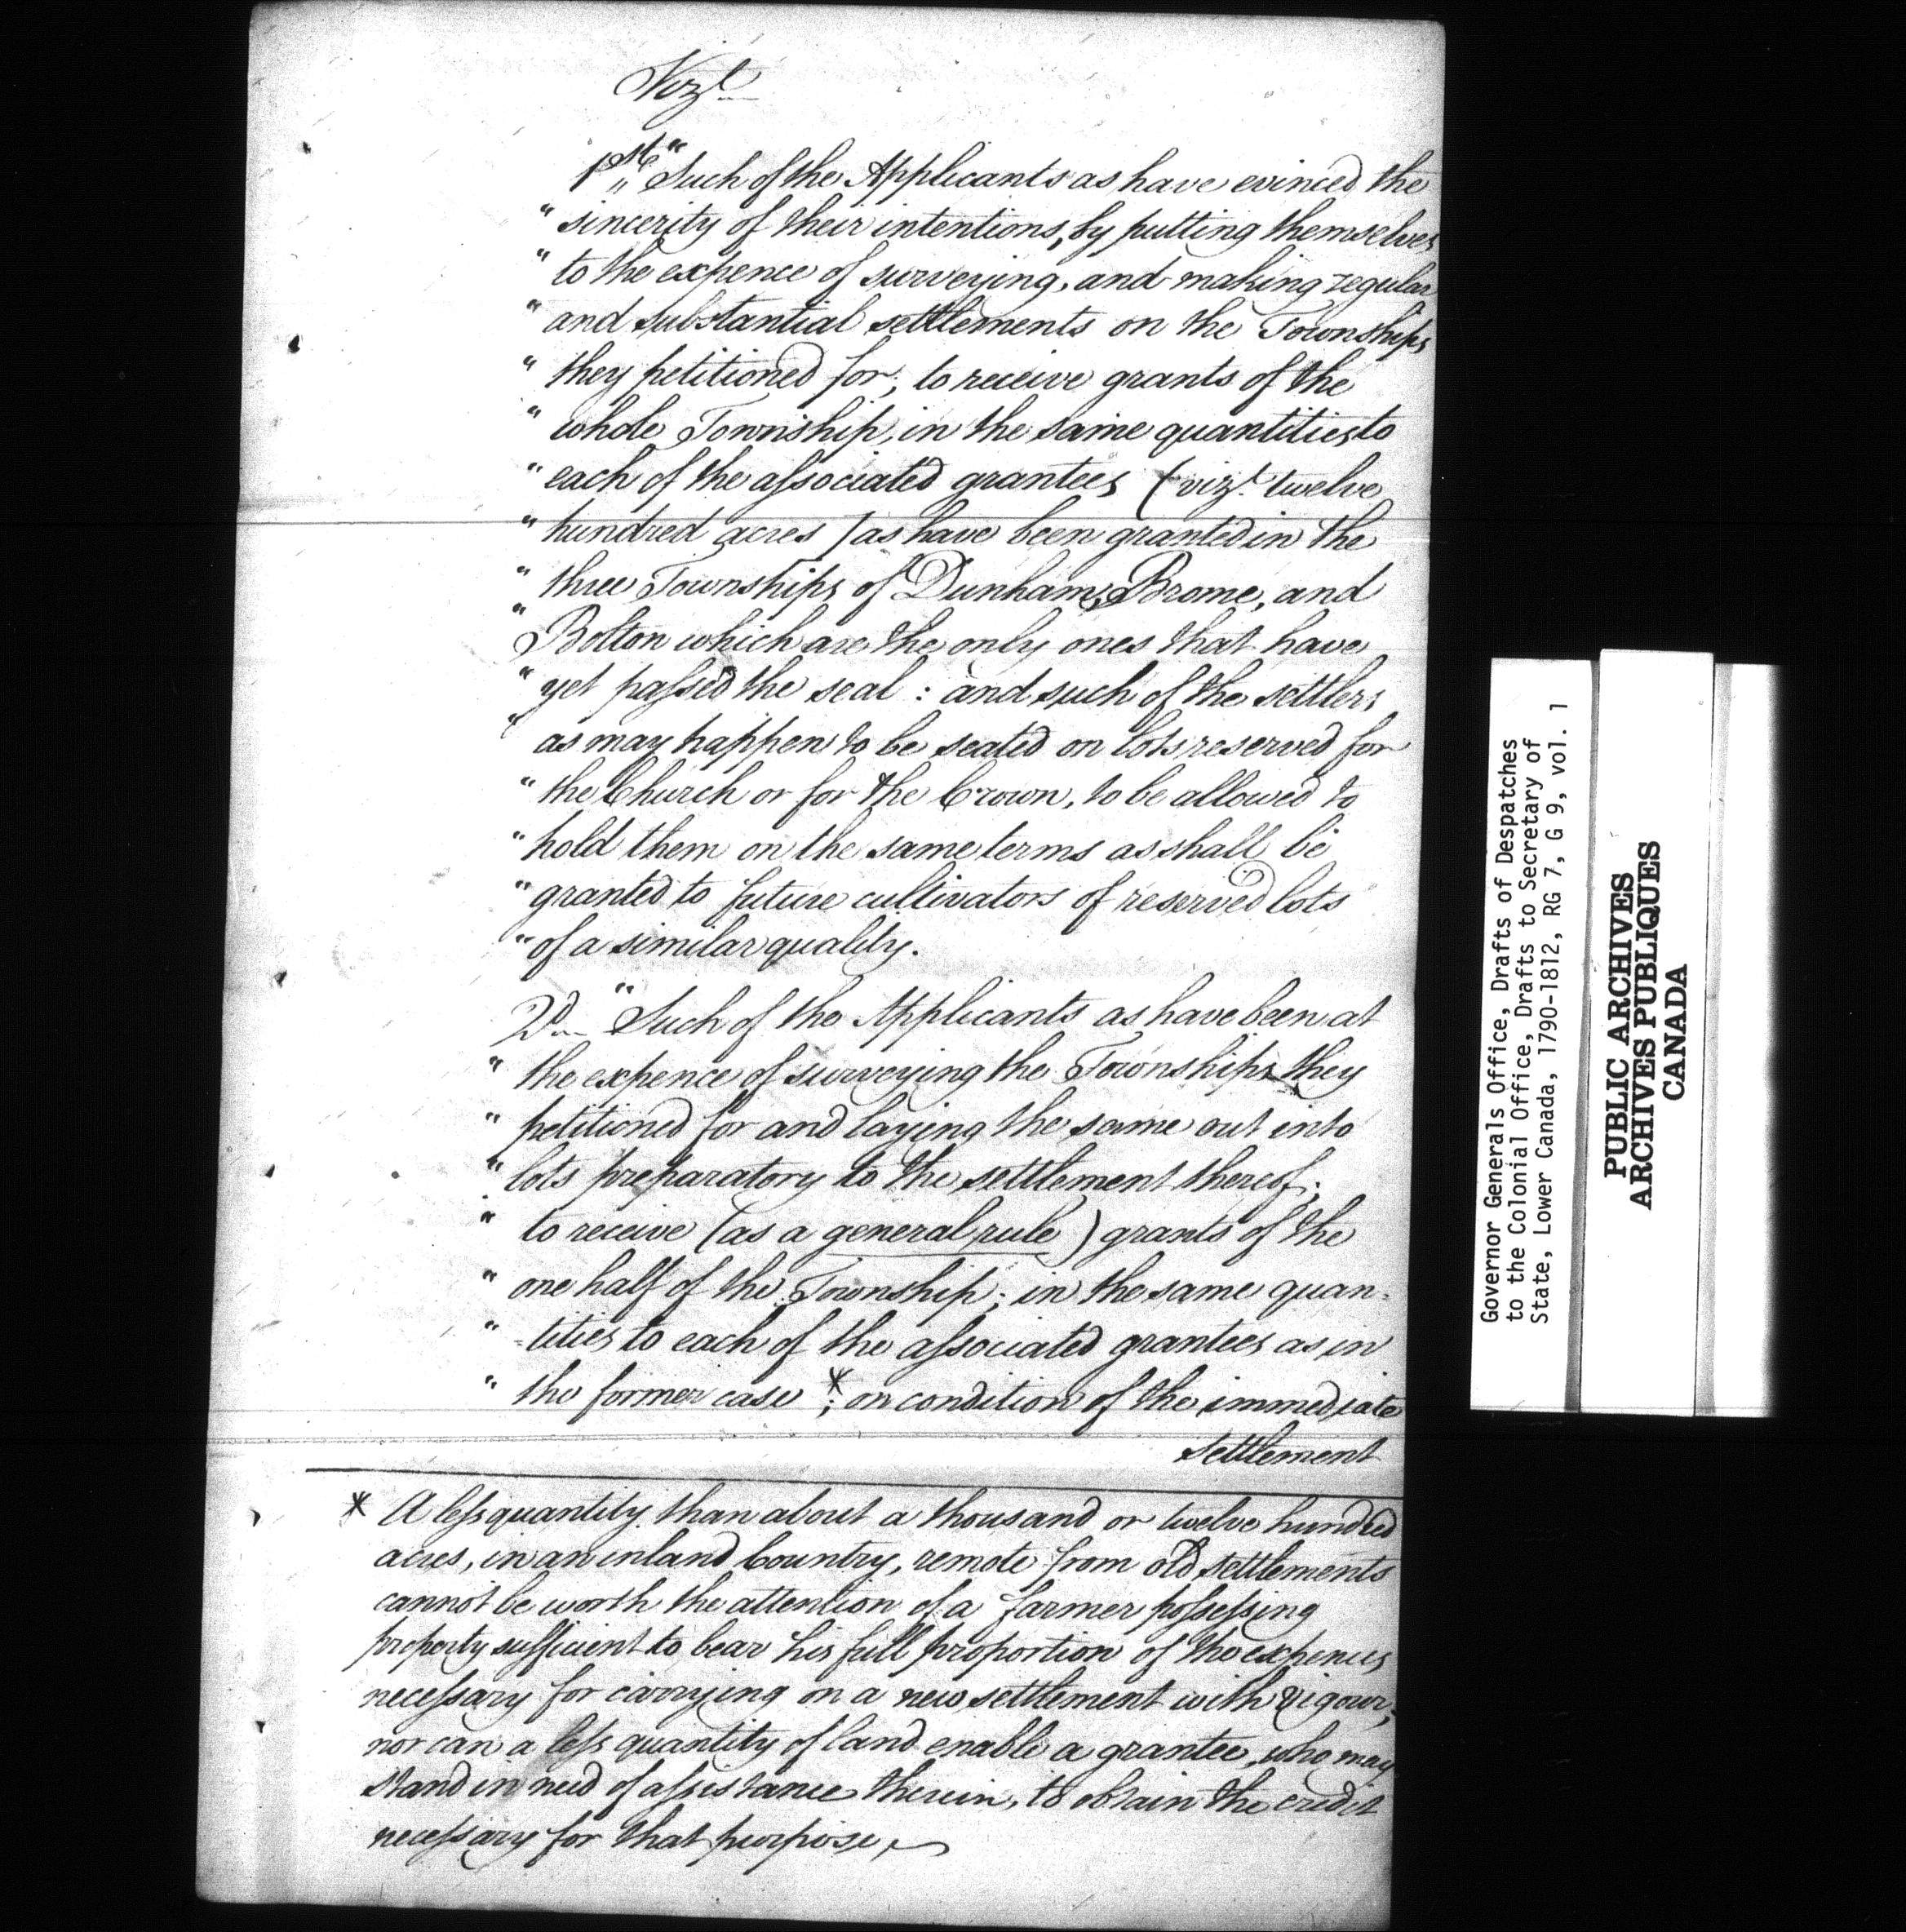 Vizt
1st " Such of the Applicants as have evinced the
" sincerity of their intentions, by putting themselves
" to the expence of surveying, and making regular
" and substantial settlements on the Townships
" they petitioned for; to receive grants of the
" whole Township, in the same quantities to
" each of the associated grantees (vizt. twelve
" hundred acres) as have been granted in the
" three Townships of Dunham, Brome, and
" Bolton which are the only ones that have
" yet passed the seal : and such of the settlers
" as may happen to be seated on lots reserved for
" the Church or for the Crown, to be allowed to
" hold them on the same terms as shall be
" granted to future cultivators of reserved lots
" of a similar quality.
2d " Such of the Applicants as have been at
" the expence of surveying the Townships they
" petitioned for and laying the same out into
" lots preparatory to the settlement thereof;
" to receive (as a general rule) grants of the
" one half of the Township; in the same quan-
" -tities to each of the associated grantees as in
" the former case *; on condition of the immediate
settlement
* A less quantity than about a thousand or twelve hundred
acres, in an inland Country, remote from old settlements
cannot be worth the attention of a farmer possessing
property sufficient to bear his full proportion of the expences
necessary for carrying on a new settlement with vigour;
nor can a less quantity of land enable a grantee, who may
stand in need of assistance therein, to obtain the credit
necessary for that purpose.
Governor Generals Office, Drafts of Despatches
to the Colonial Office, Drafts to Secretary of
State, Lower Canada, 1790-1812, RG 7, G 9, vol. 1
PUBLIC ARCHIVES
ARCHIVES PUBLIQUES
CANADA